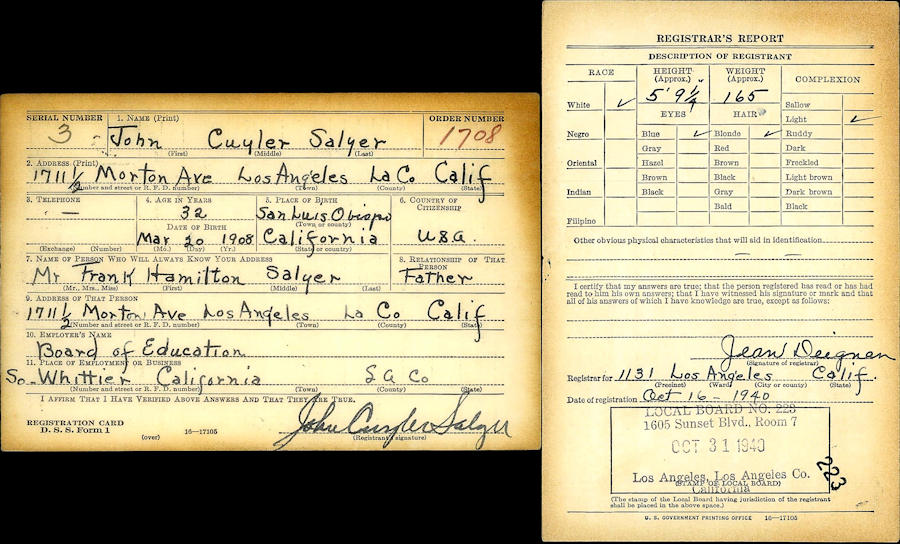 SERIAL NUMBER 1. NAME (Print) ORDER NUMBER
3 John Cuyler Salyer 1708
(First) (Middle) (Last)
2. ADDRESS (Print)
1711 1/2 Morton Ave Los Angeles La Co Calif
(Number and street or R. F. D. number) (Town) (County) (State)
3. TELEPHONE 4. AGE IN YEARS 5. PLACE OF BIRTH 6. COUNTRY OF CITIZENSHIP
— 32 San Luis Obispo
DATE OF BIRTH (Town or county)
Mar 20 1908 California U.S.A.
(Exchange) (Number) (Mo.) (Day) (Yr.) (State or country)
7. NAME OF PERSON WHO WILL ALWAYS KNOW YOUR ADDRESS 8. RELATIONSHIP OF THAT PERSON
Mr Frank Hamilton Salyer Father
(Mr., Mrs., Miss) (First) (Middle) (Last)
9. ADDRESS OF THAT PERSON
1711 1/2 Morton Ave Los Angeles La Co Calif
(Number and street or R. F. D. number) (Town) (County) (State)
10. EMPLOYER'S NAME
Board of Education
11. PLACE OF EMPLOYMENT OR BUSINESS
So. Whittier California Co
(Number and street or R. F. D. number) (Town) (County) (State)
I AFFIRM THAT I HAVE VERIFIED ABOVE ANSWERS AND THAT THEY ARE TRUE.
REGISTRATION CARD
D. S. S. Form 1 (over) 16—17105 John Cuyler Salyer
(Registrant's signature)
REGISTRAR'S REPORT
DESCRIPTION OF REGISTRANT
RACE HEIGHT (Approx.) WEIGHT (Approx.) COMPLEXION
White ✓ 5' 9 1/4" 165 Sallow
EYES HAIR Light ✓
Negro Blue ✓ Blonde ✓ Ruddy
Gray Red Dark
Oriental Hazel Brown Freckled
Brown Black Light brown
Indian Black Gray Dark brown
Bald Black
Filipino
Other obvious physical characteristics that will aid in identification
— —
I certify that my answers are true; that the person registered has read or has had
read to him his own answers; that I have witnessed his signature or mark and that
all of his answers of which I have knowledge are true, except as follows:
Jean Deignan
(Signature of registrar)
Registrar for 1131 Los Angeles Calif.
(Precinct) (Ward) (City or county) (State)
Date of registration Oct 16 - 1940
LOCAL BOARD NO. 223
1605 Sunset Blvd., Room 7
OCT 31 1940
Los Angeles, Los Angeles Co.
(STAMP OF LOCAL BOARD)
California
223
(The stamp of the Local Board having jurisdiction of the registrant
shall be placed in the above space.)
U. S. GOVERNMENT PRINTING OFFICE 16—17105